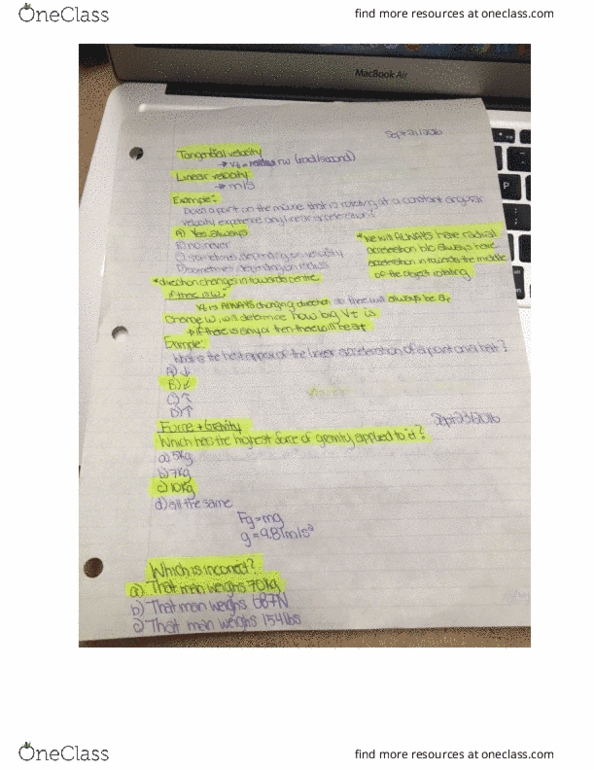 OneClass
find more resources at oneclass.com
MacBook Air
Sept 21/2016
Tangential velocity
rw (rad/second)
Linear velocity
→ m/s
Example:
Does a point on the mouse that is rotating at a constant angular
velocity experience any linear acceleration?
A) Yes always
B) no never
C) sometimes depending on velocity
D) sometimes depending on radius
*we will ALWAYS have radial
acceleration b/c always have
acceleration in towards the middle
of the object rotating
*direction changes in towards centre
if there is w.
Vt is ALWAYS changing direction so there will always be ar
Change w, will determine how big Vt is
if there is any α then there will be at
Example:
What is the best approx of the linear acceleration of a point on a belt?
A) ↓
B) ↙
C) ↑
D) ↑
Force + Gravity
Sept 23/2016
Which has the highest force of gravity applied to it?
a) 5kg
b) 7kg
c) 10kg
d) all the same
Fg=mg
g=9.81m/s²
Which is incorrect?
a) That man weighs 70kg
b) That man weighs 687N
c) That man weighs 154lbs
OneClass
find more resources at oneclass.com